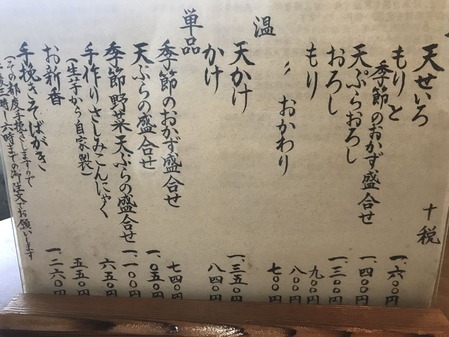 十税
天せいろ 一、六〇〇円
もりと
季節のおかず盛合せ 一、四〇〇円
天ぷらおろし 一、三〇〇円
おろし 九〇〇円
もり 八〇〇円
〃 おかわり 七〇〇円
温
天かけ 一、三五〇円
かけ 八四〇円
単品
季節のおかず盛合せ 七四〇円
天ぷらの盛合せ 一、〇五〇円
季節野菜天ぷらの盛合せ 一、一〇〇円
手作りさしみこんにゃく 六五〇円
(生芋から自家製)
お新香 五五〇円
手挽きそばがき 一、二六〇円
(その都度手挽きしますので
六時までの御注文でお願いします